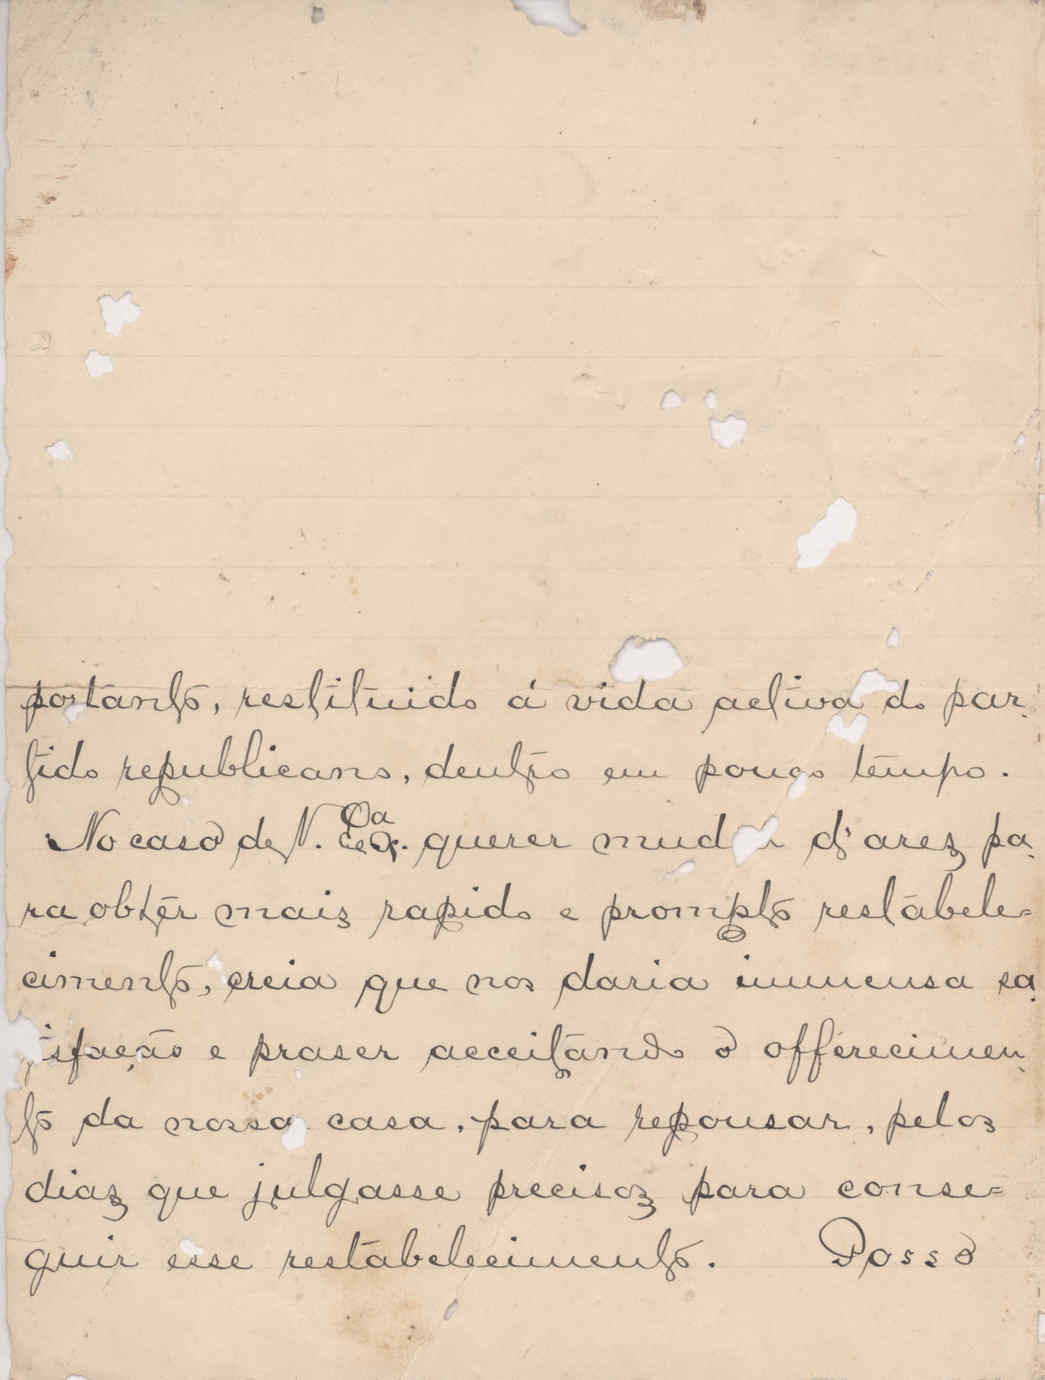 portanto, restituido á vida activa do par-
tido republicano, dentro em pouco tempo.
No caso de V. Excia. querer mudar d'ares pa-
ra obter mais rapido e prompto restabele=
cimento, creia que nos daria immensa sa-
tisfação e praser acceitando o offerecimen-
to da nossa casa, para repousar, pelos
dias que julgasse precisos para conse=
guir esse restabelecimento. Posso